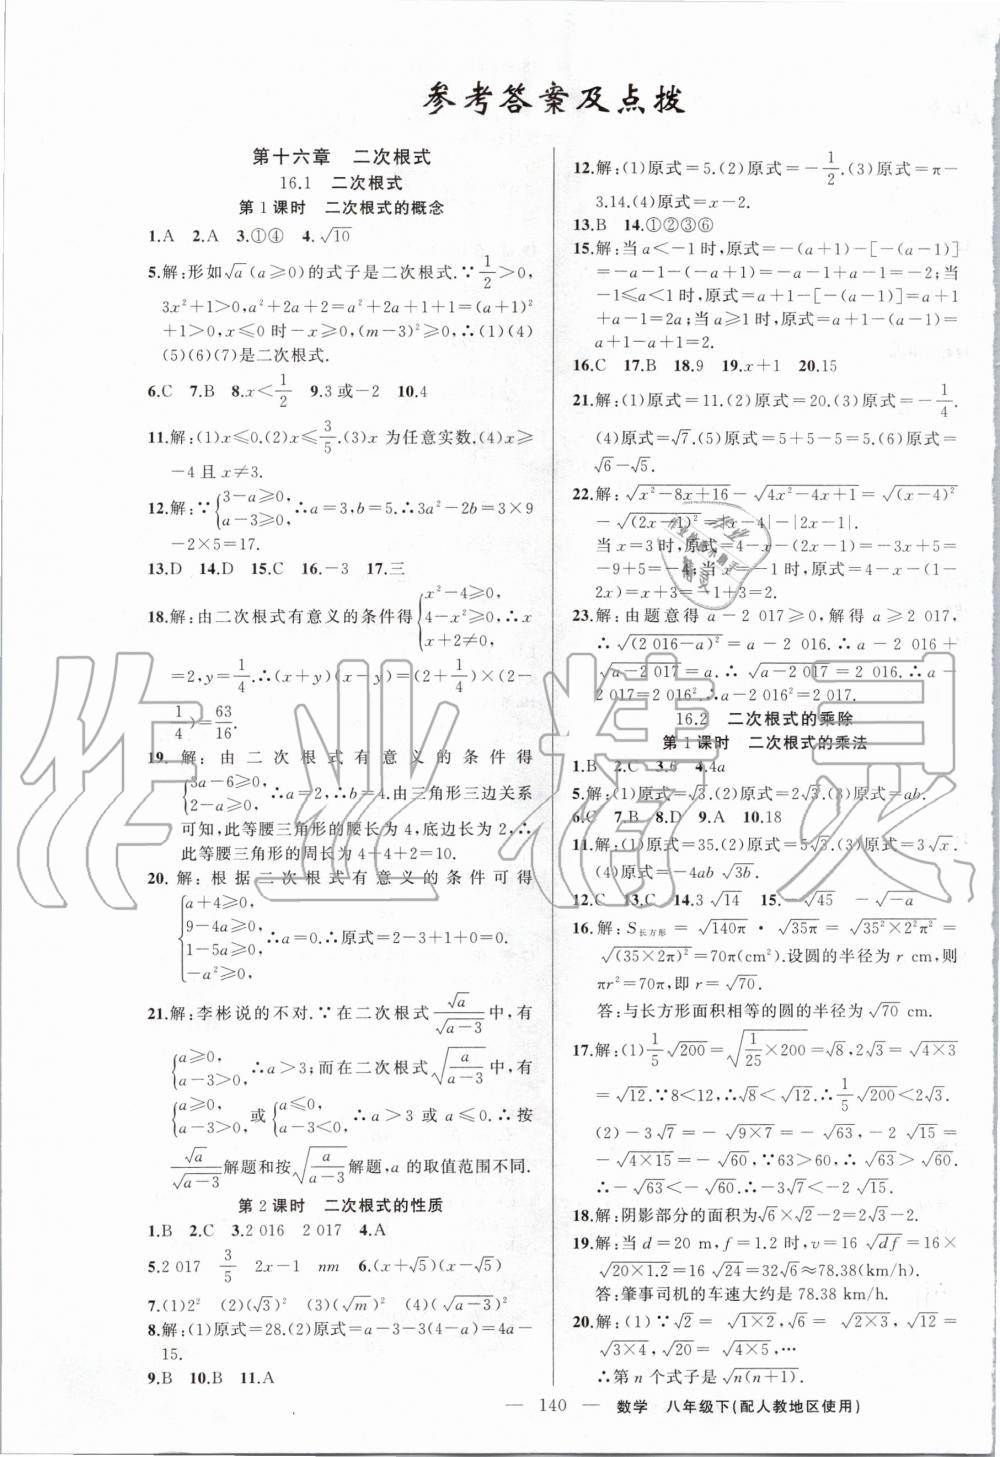 参考答案及点拨
第十六章 二次根式
16.1 二次根式
第1课时 二次根式的概念
1.A 2.A 3.①④ 4.√10
5.解:形如√a(a≥0)的式子是二次根式.∵1/2>0,
3x²+1>0,a²+2a+2=a²+2a+1+1=(a+1)²
+1>0,x≤0时-x≥0,(m-3)²≥0,∴(1)(4)
(5)(6)(7)是二次根式.
6.C 7.B 8.x<1/2 9.3或-2 10.4
11.解:(1)x≤0.(2)x≤3/5.(3)x为任意实数.(4)x≥
-4且x≠3.
12.解:∵{3-a≥0, a-3≥0, ∴a=3,b=5.∴3a²-2b=3×9
-2×5=17.
13.D 14.D 15.C 16.-3 17.三
18.解:由二次根式有意义的条件得{x²-4≥0, 4-x²≥0, x+2≠0, ∴x
=2,y=1/4.∴(x+y)(x-y)=(2+1/4)×(2-
1/4)=63/16.
19.解:由二次根式有意义的条件得
{3a-6≥0, 2-a≥0, ∴a=2,∴b=4.由三角形三边关系
可知,此等腰三角形的腰长为4,底边长为2,∴
此等腰三角形的周长为4+4+2=10.
20.解:根据二次根式有意义的条件可得
{a+4≥0, 9-4a≥0, 1-5a≥0, -a²≥0, ∴a=0.∴原式=2-3+1+0=0.
21.解:李彬说的不对.∵在二次根式√a/√(a-3)中,有
{a≥0, a-3>0, ∴a>3;而在二次根式√(a/(a-3))中,有
{a≥0, a-3>0, 或{a≤0, a-3<0, ∴a>3或a≤0.∴按
√a/√(a-3)解题和按√(a/(a-3))解题,a的取值范围不同.
第2课时 二次根式的性质
1.B 2.C 3.2 016 2 017 4.A
5.2 017 3/5 2x-1 nm 6.(x+√5)(x-√5)
7.(1)2² (2)(√3)² (3)(√m)² (4)(√(a-3))²
8.解:(1)原式=28.(2)原式=a-3-3(4-a)=4a-
15.
9.B 10.B 11.A
12.解:(1)原式=5.(2)原式=-1/2.(3)原式=π-
3.14.(4)原式=x-2.
13.B 14.①②③⑥
15.解:当a<-1时,原式=-(a+1)-[-(a-1)]
=-a-1-(-a+1)=-a-1+a-1=-2;当
-1≤a<1时,原式=a+1-[-(a-1)]=a+1
+a-1=2a;当a≥1时,原式=a+1+(a-1)=
a+1+a-1=2a.
16.C 17.B 18.9 19.x+1 20.15
21.解:(1)原式=11.(2)原式=20.(3)原式=-1/4.
(4)原式=√7.(5)原式=5+5-5=5.(6)原式=
√6-√5.
22.解:√(x²-8x+16)-√(4x²-4x+1)=√(x-4)²
-√(2x-1)²=|x-4|-|2x-1|.
当x=3时,原式=4-x-(2x-1)=-3x+5=
-9+5=-4;当x=-1时,原式=4-x-(1-
2x)=x+3=-1+3=2.
23.解:由题意得a-2 017≥0,解得a≥2 017,
∴√(2 016-a)²=a-2 016.∴a-2 016+
√(a-2 017)=a.∴√(a-2 017)=2 016.∴a-
2 017=2 016²,∴a=2 016²+2 017.
16.2 二次根式的乘除
第1课时 二次根式的乘法
1.B 2.C 3.6 4.4a
5.解:(1)原式=√3.(2)原式=2√3.(3)原式=ab.
6.C 7.B 8.D 9.A 10.18
11.解:(1)原式=35.(2)原式=5√3.(3)原式=3√x.
(4)原式=-4ab√(3b).
12.C 13.C 14.3√14 15.-√45 -√-a
16.解:S长方形=√(140π)·√(35π)=√(35²×2²π²)=
√(35×2π)²=70π(cm²).设圆的半径为r cm,则
πr²=70π,即r=√70.
答:与长方形面积相等的圆的半径为√70 cm.
17.解:(1)1/5√200=√(1/25×200)=√8,2√3=√(4×3)
=√12.∵8<12,∴√8<√12.∴1/5√200<2√3.
(2)-3√7=-√(9×7)=-√63,-2√15=
-√(4×15)=-√60,∵63>60,∴√63>√60.
∴-√63<-√60.∴-3√7<-2√15.
18.解:阴影部分的面积为√6×√2-2=2√3-2.
19.解:当d=20 m,f=1.2时,v=16√(df)=16×
√(20×1.2)=16√24=32√6≈78.38(km/h).
答:肇事司机的车速大约是78.38 km/h.
20.解:(1)∵√2=√(1×2),√6=√(2×3),√12=
√(3×4),√20=√(4×5),…
∴第n个式子是√(n(n+1)).
— 140 — 数学 八年级下(配人教地区使用)
作业精灵